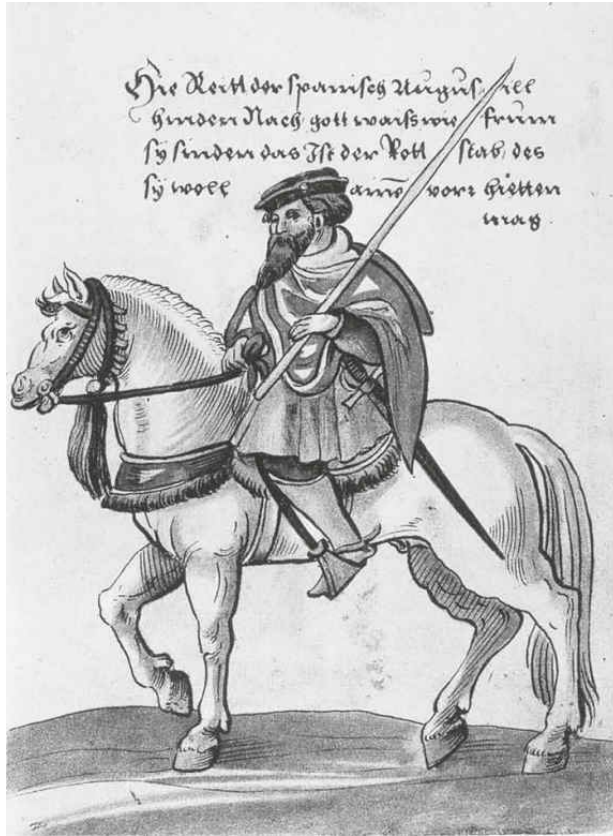 Hie Reitt der spanisch Augusill
hinden Nach gott waiss wie frum
sy sinden das Ist der Rott stab des
sy woll vor hietten
mag